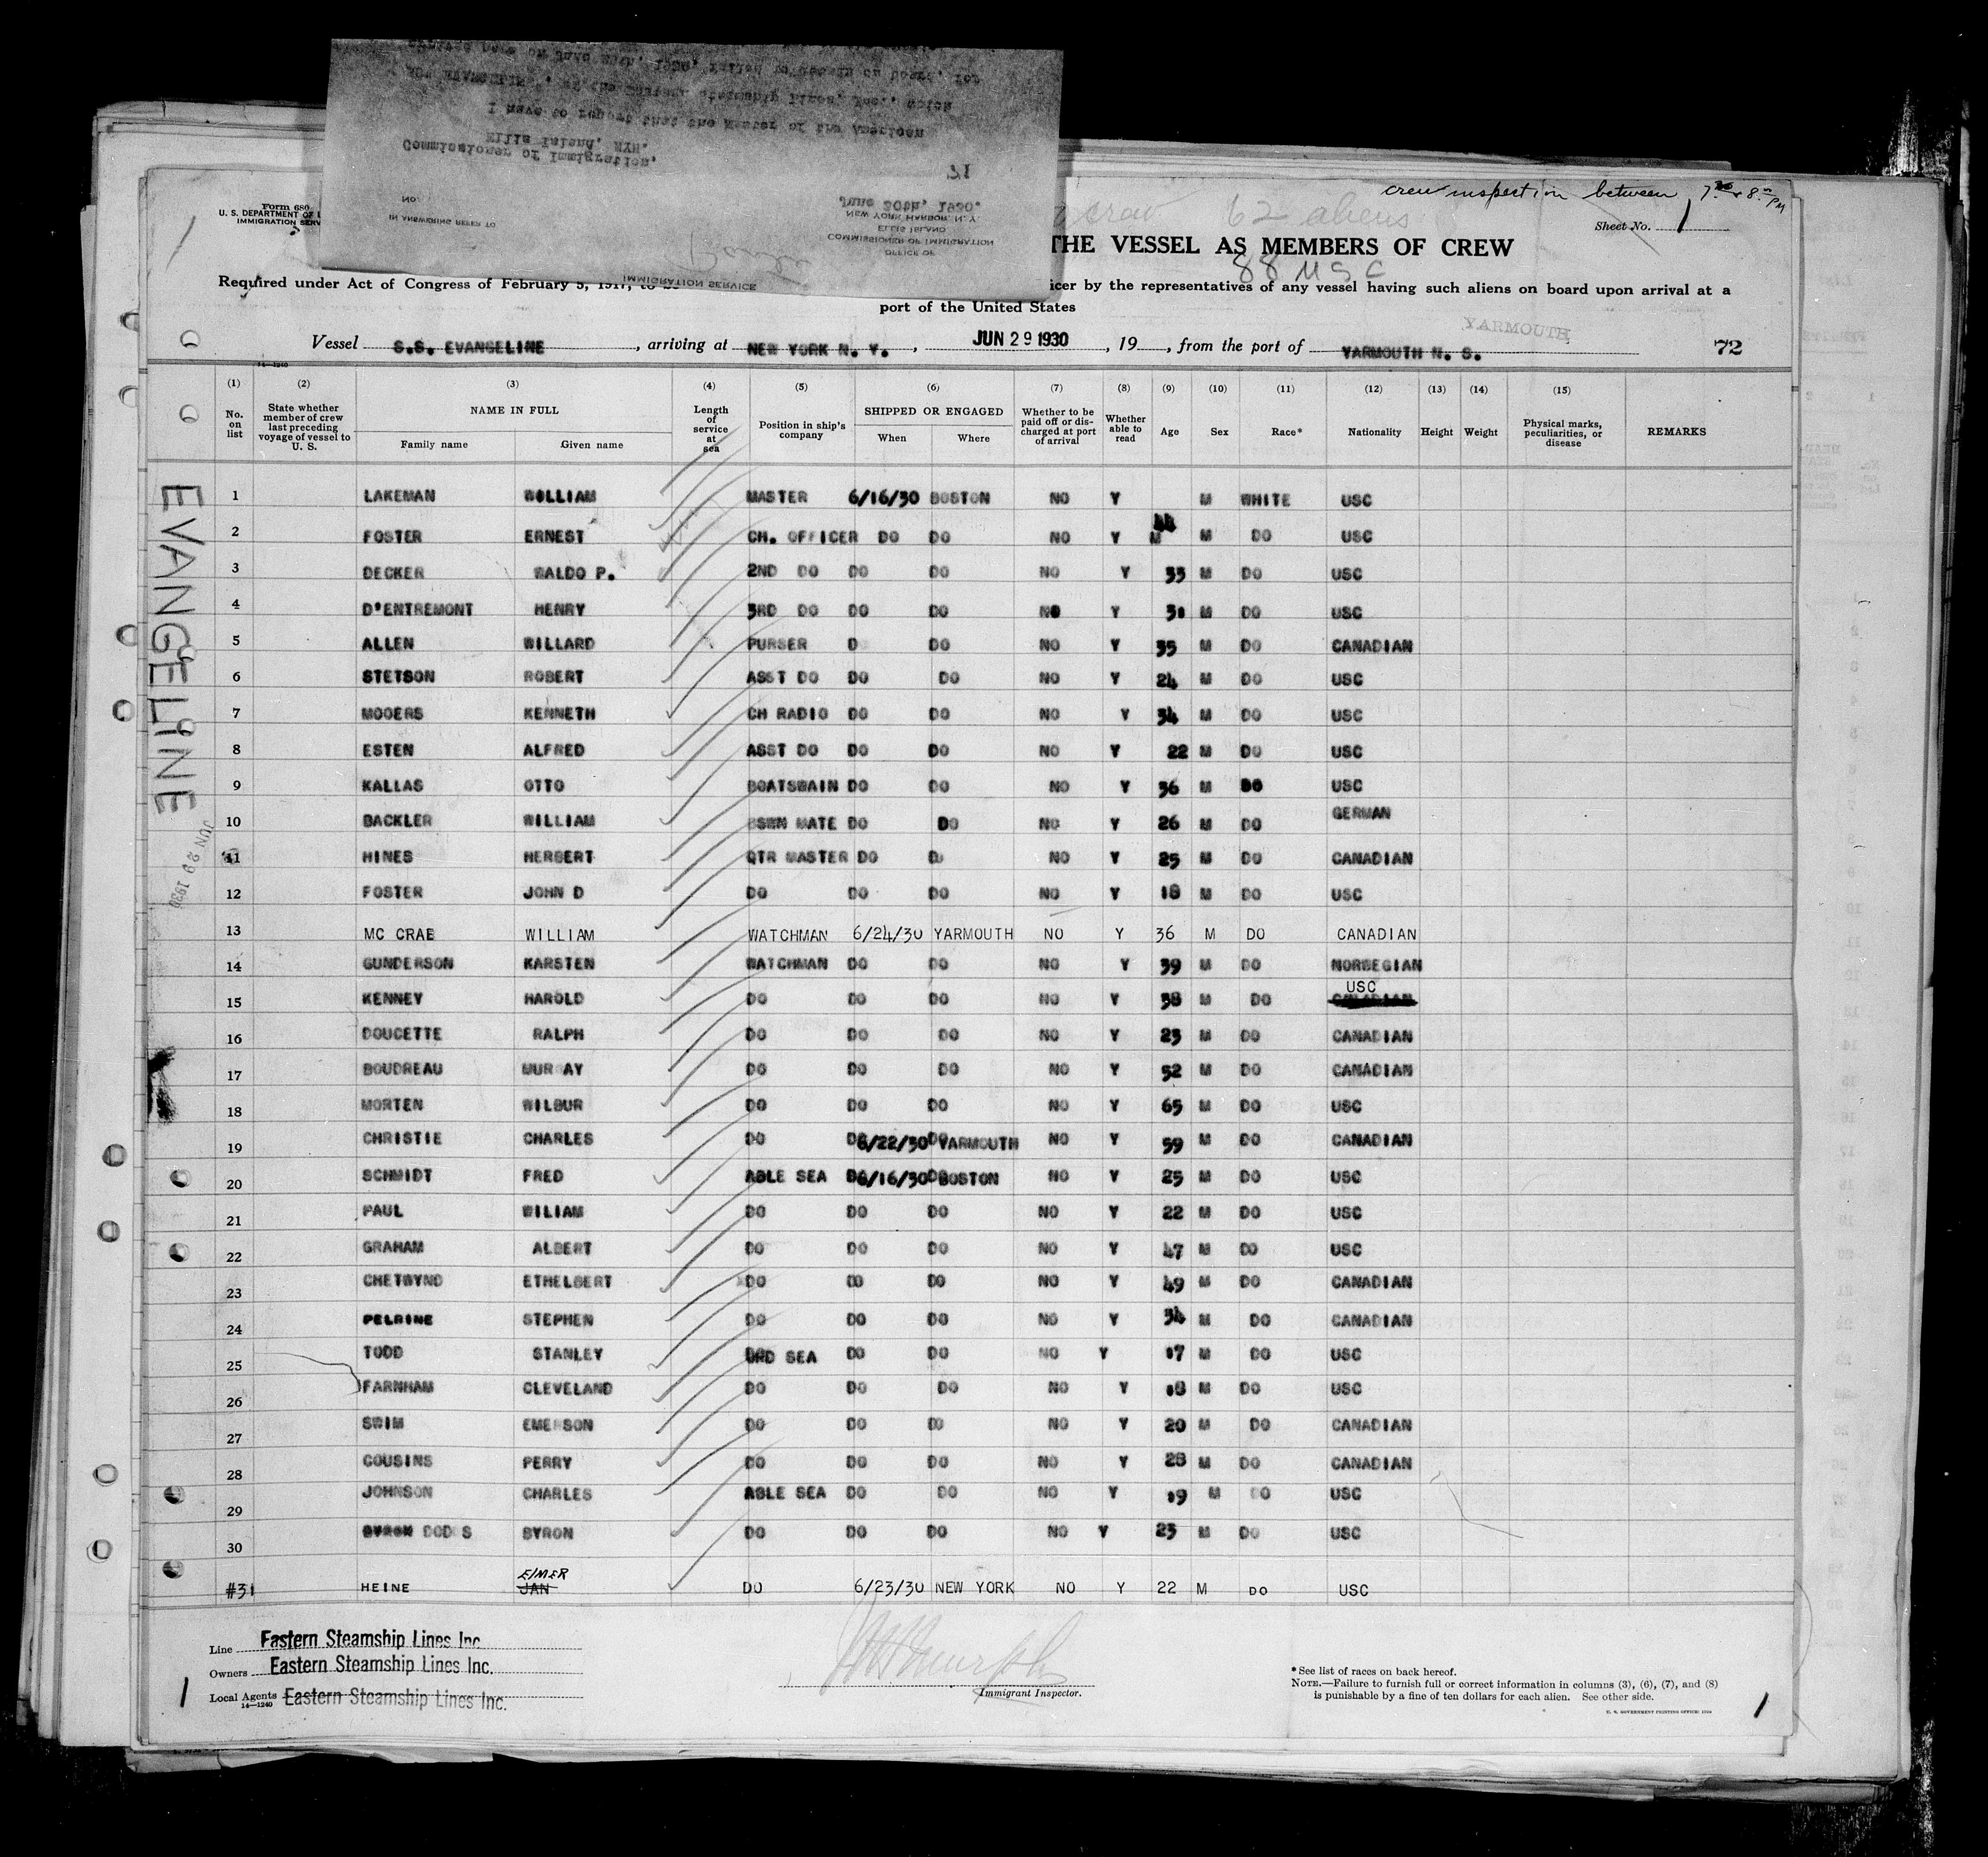 Commissioner of Immigration,
Ellis Island, NYH.
I have to report that the Master of the American
June 30th, 1930.
NEW YORK HARBOR, N.Y.
ELLIS ISLAND
COMMISSIONER OF IMMIGRATION
OFFICE OF
No.
IN ANSWERING REFER TO
IMMIGRATION SERVICE
crew inspection between
Form 680
U. S. DEPARTMENT OF
IMMIGRATION SERV
crew 62 aliens
Sheet No. 1
THE VESSEL AS MEMBERS OF CREW
88 USC
Required under Act of Congress of February 5, 1917, to
icer by the representatives of any vessel having such aliens on board upon arrival at a
port of the United States
YARMOUTH
Vessel S.S. EVANGELINE, arriving at NEW YORK N. Y., JUN 29 1930, 19, from the port of YARMOUTH N. S. 72
14—1240
(1) (2) (3) (4) (5) (6) (7) (8) (9) (10) (11) (12) (13) (14) (15)
No. on list
State whether member of crew last preceding voyage of vessel to U. S.
NAME IN FULL
Family name Given name
Length of service at sea
Position in ship's company
SHIPPED OR ENGAGED
When Where
Whether to be paid off or discharged at port of arrival
Whether able to read
Age Sex Race* Nationality Height Weight
Physical marks, peculiarities, or disease
REMARKS
EVANGELINE
JUN 29 1930
1 LAKEMAN WILLIAM MASTER 6/16/30 BOSTON NO Y M WHITE USC
2 FOSTER ERNEST CH. OFFICER DO DO NO Y 44 M DO USC
3 DECKER WALDO P. 2ND DO DO DO NO Y 33 M DO USC
4 D'ENTREMONT HENRY 3RD DO DO DO NO Y 31 M DO USC
5 ALLEN WILLARD PURSER D DO NO Y 35 M DO CANADIAN
6 STETSON ROBERT ASST DO DO DO NO Y 24 M DO USC
7 MOOERS KENNETH CH RADIO DO DO NO Y 34 M DO USC
8 ESTEN ALFRED ASST DO DO DO NO Y 22 M DO USC
9 KALLAS OTTO BOATSWAIN DO DO NO Y 36 M DO USC
10 BACKLER WILLIAM BSWN MATE DO DO NO Y 26 M DO GERMAN
11 HINES HERBERT QTR MASTER DO D NO Y 25 M DO CANADIAN
12 FOSTER JOHN D DO DO DO NO Y 18 M DO USC
13 MC CRAE WILLIAM WATCHMAN 6/24/30 YARMOUTH NO Y 36 M DO CANADIAN
14 GUNDERSON KARSTEN WATCHMAN DO DO NO Y 39 M DO NORWEGIAN
15 KENNEY HAROLD DO DO DO NO Y 38 M DO USC CANADIAN
16 DOUCETTE RALPH DO DO DO NO Y 23 M DO CANADIAN
17 BOUDREAU MUR AY DO DO DO NO Y 52 M DO CANADIAN
18 MORTEN WILBUR DO DO DO NO Y 65 M DO USC
19 CHRISTIE CHARLES DO 6/22/30 YARMOUTH NO Y 59 M DO CANADIAN
20 SCHMIDT FRED ABLE SEA 6/16/30 BOSTON NO Y 25 M DO USC
21 PAUL WILIAM DO DO DO NO Y 22 M DO USC
22 GRAHAM ALBERT DO DO DO NO Y 47 M DO USC
23 CHETWYND ETHELBERT DO DO DO NO Y 49 M DO CANADIAN
24 PELRINE STEPHEN DO DO DO NO Y 34 M DO CANADIAN
25 TODD STANLEY ORD SEA DO DO NO Y 17 M DO USC
26 FARNHAM CLEVELAND DO DO DO NO Y 18 M DO USC
27 SWIM EMERSON DO DO DO NO Y 20 M DO CANADIAN
28 COUSINS PERRY DO DO DO NO Y 28 M DO CANADIAN
29 JOHNSON CHARLES ABLE SEA DO DO NO Y 19 M DO USC
30 BYRON DODGS BYRON DO DO DO NO Y 23 M DO USC
#31 HEINE JAN ElMER DO 6/23/30 NEW YORK NO Y 22 M DO USC
Line Eastern Steamship Lines Inc
Owners Eastern Steamship Lines Inc.
Local Agents Eastern Steamship Lines Inc.
14—1240
Immigrant Inspector.
*See list of races on back hereof.
NOTE.—Failure to furnish full or correct information in columns (3), (6), (7), and (8)
is punishable by a fine of ten dollars for each alien. See other side.
1
1